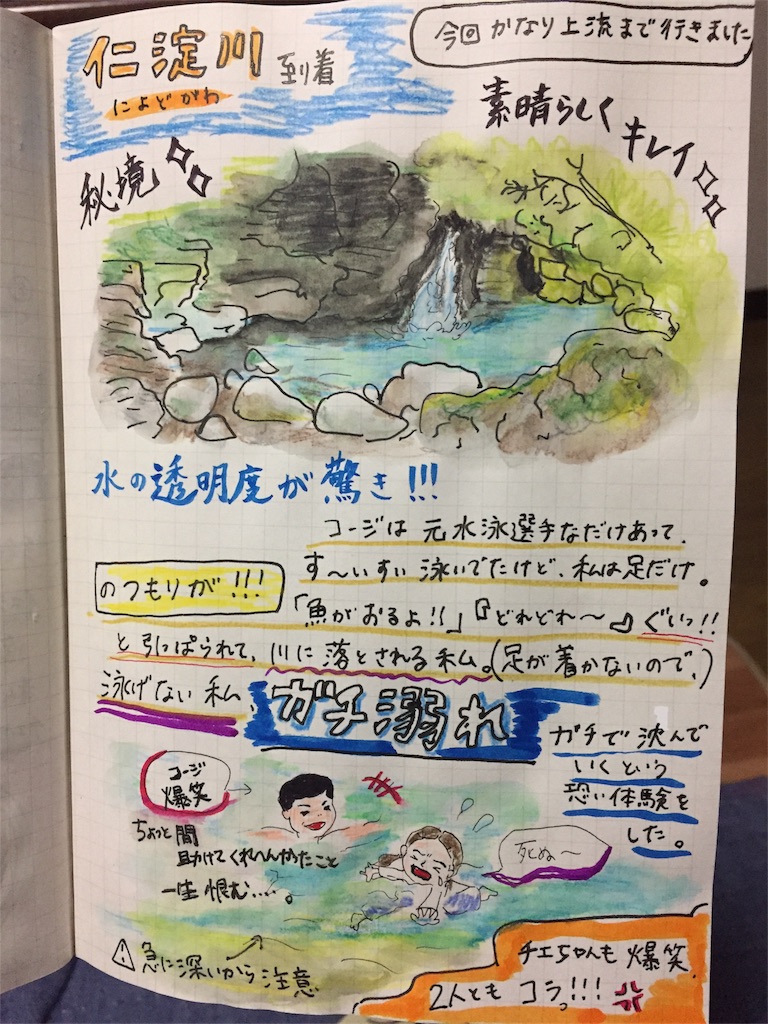 今回かなり上流まで行きました
仁淀川 到着
によどがわ
素晴らしく
キレイ
秘境
水の透明度が驚き!!!
コージは元水泳選手なだけあって、
す〜いすい泳いでたけど、私は足だけ。
のつもりが!!!
「魚がおるよ!!」『どれどれ〜』ぐいっ!!
と引っぱられて、川に落とされる私。(足が着かないので、)
泳げない私、
ガチ溺れ
ガチで沈んで
いくという
恐い体験を
した。
コージ
爆笑
ちょっと間
助けてくれへんかったこと
一生恨む....。
死ぬ〜
急に深いから注意
チエちゃんも爆笑
2人ともコラっ!!!